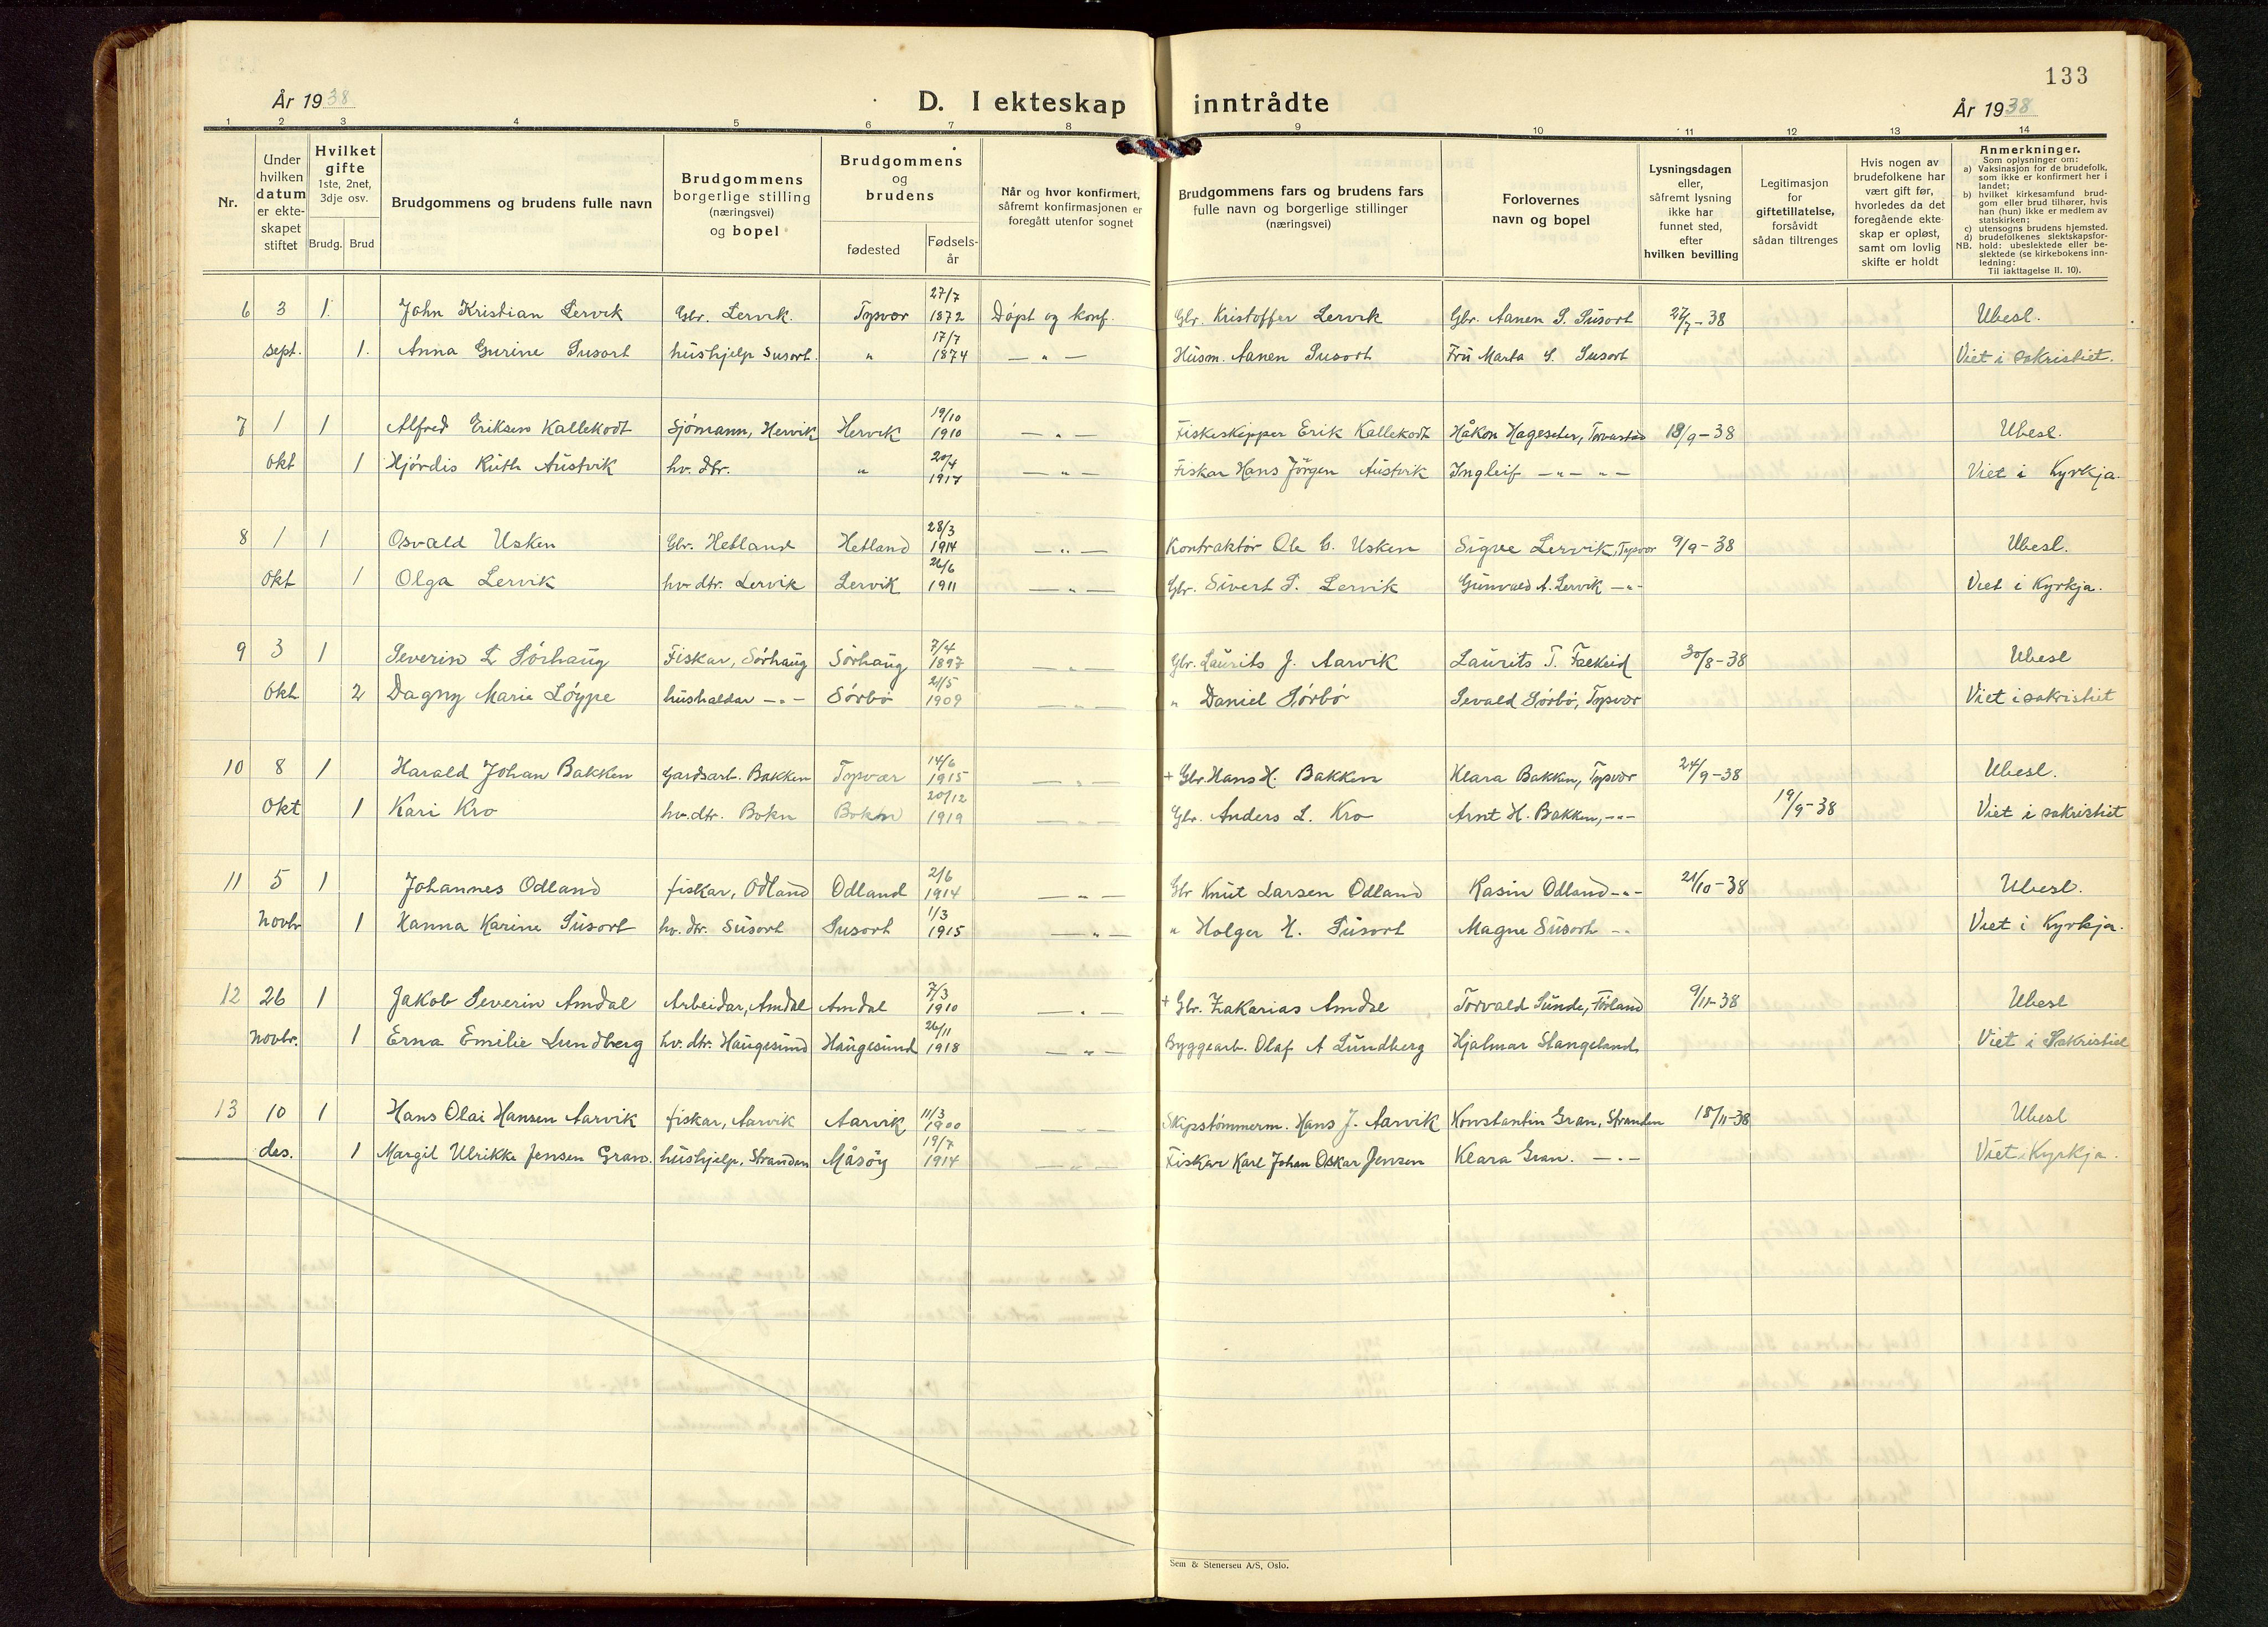 133
År 1938
D. I ekteskap inntrådte
År 1938
1 2 3 4 5 6 7 8 9 10 11 12 13 14
Nr.
Under hvilken datum er ekteskapet stiftet
Hvilket gifte 1ste, 2net, 3dje osv.
Brudg. Brud
Brudgommens og brudens fulle navn
Brudgommens borgerlige stilling (næringsvei) og bopel
Brudgommens og brudens
fødested
Fødselsår
Når og hvor konfirmert, såfremt konfirmasjonen er foregått utenfor sognet
Brudgommens fars og brudens fars fulle navn og borgerlige stillinger (næringsvei)
Forlovernes navn og bopel
Lysningsdagen eller, såfremt lysning ikke har funnet sted, efter hvilken bevilling
Legitimasjon for giftetillatelse, forsåvidt sådan tiltrenges
Hvis nogen av brudefolkene har vært gift før, hvorledes da det foregående ekteskap er opløst, samt om lovlig skifte er holdt
Anmerkninger.
Som oplysninger om:
a) Vaksinasjon for de brudefolk, som ikke er konfirmert her i landet;
b) hvilket kirkesamfund brudgom eller brud tilhører, hvis han (hun) ikke er medlem av statskirken;
c) utensogns brudens hjemsted.
d) brudefolkenes slektskapsforhold: ubeslektede eller beslektede (se kirkebokens innledning:
NB.
Til iakttagelse II. 10).
6 3 1. John Kristian Lervik Gbr. Lervik. Tysvær 27/7 1872 Döpt og konf. Gbr. Kristoffer Lervik Gbr. Aanen S. Susort 27/7-38 Ubesl.
sept. 1. Anna Gurine Susort hushjelp Susort. " 17/7 1874 — " — Husm. Aanen Susort Fru Marta S. Susort Viet i sakristiet.
7 1 1 Alfred Eriksen Kallekodt Sjömann, Hervik Hervik 19/10 1910 — " — Fiskeskipper Erik Kallekodt Håkon Hageseter, Torvastad 18/9-38 Ubesl.
Okt 1 Hjördis Ruth Austvik hv. dtr. " 20/4 1917 — " — Fiskar Hans Jörgen Austvik Ingleif — " — " — Viet i Kyrkja.
8 1 1 Osvald Usken Gbr. Hetland Hetland 28/3 1914 — " — Kontraktör Ole G. Usken Sigve Lervik, Tysvær 9/9-38 Ubesl.
Okt 1 Olga Lervik hv. dtr. Lervik Lervik 26/6 1911 — " — Gbr. Sivert S. Lervik Gunvald A. Lervik — " — Viet i Kyrkja.
9 3 1 Severin L Sörhaug Fiskar, Sörhaug Sörhaug 7/4 1897 — " — Gbr. Laurits J. Aarvik Laurits T. Falkeid 30/8-38 Ubesl
Okt 2 Dagny Marie Löype hushaldar — " — Sörbö 21/5 1909 — " — " Daniel Sörbö Sevald Sörbö, Tysvær Viet i sakristiet
10 8 1 Harald Johan Bakken Gardsarb. Bakken Tysvær 14/6 1915 — " — + Gbr. Hans H. Bakken Klara Bakken, Tysvær 24/9-38 Ubesl.
Okt 1 Kari Kro hv. dtr. Bokn Bokn 20/12 1919 — " — Gbr. Anders L. Kro Arnt H. Bakken, — " — 19/9-38 Viet i sakristiet
11 5 1 Johannes Odland fiskar, Odland Odland 2/6 1914 — " — Gbr Knut Larsen Odland Rasin Odland — " — 21/10-38 Ubesl.
Novbr 1 Hanna Karine Susort hv. dtr. Susort Susort 1/3 1915 — " — " Holger H. Susort Magne Susort — " Viet i Kyrkja.
12 26 1 Jakob Severin Amdal Arbeidar, Amdal Amdal 7/3 1910 — " — + Gbr. Zakarias Amdal Torvald Sunde, Förland 9/11-38 Ubesl
Novbr. 1 Erna Emilie Lundberg hv. dtr. Haugesund Haugesund 26/11 1918 — " — Byggearb. Olaf A Lundberg Hjalmar Stangeland Viet i Sakristiet
13 10 1 Hans Olai Hansen Aarvik fiskar, Aarvik Aarvik 11/3 1900 — " — Skipstömmerm. Hans J. Aarvik Konstantin Gran, Stranden 18/11-38 Ubesl
des. 1 Margit Ulrikke Jensen Gran. hushjelp, Stranden Måsöy 19/7 1914 — " — Fiskar Karl Johan Oskar Jensen Klara Gran. — " — Viet i Kyrkja.
Sem & Stenersen A/S, Oslo.